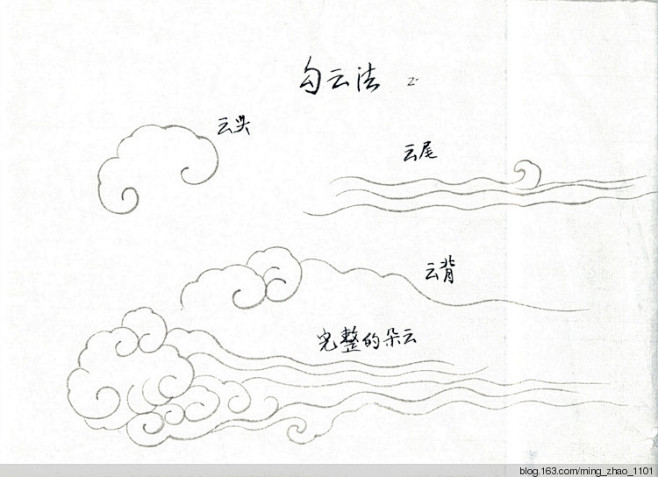 勾云法 2
云头
云尾
云背
完整的朵云
blog.163.com/ming_zhao_1101